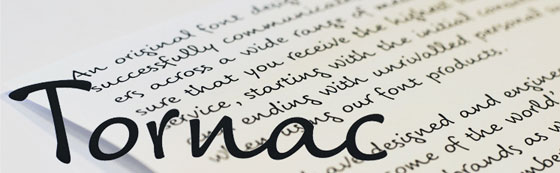 An original font desig
successfully communica
ers across a wide range of m
sure that you receive the highest
service, starting with the initial
ending with unrivalled personal
when using our font products.
have designed and engine
some of the world
brands as w
Tornac